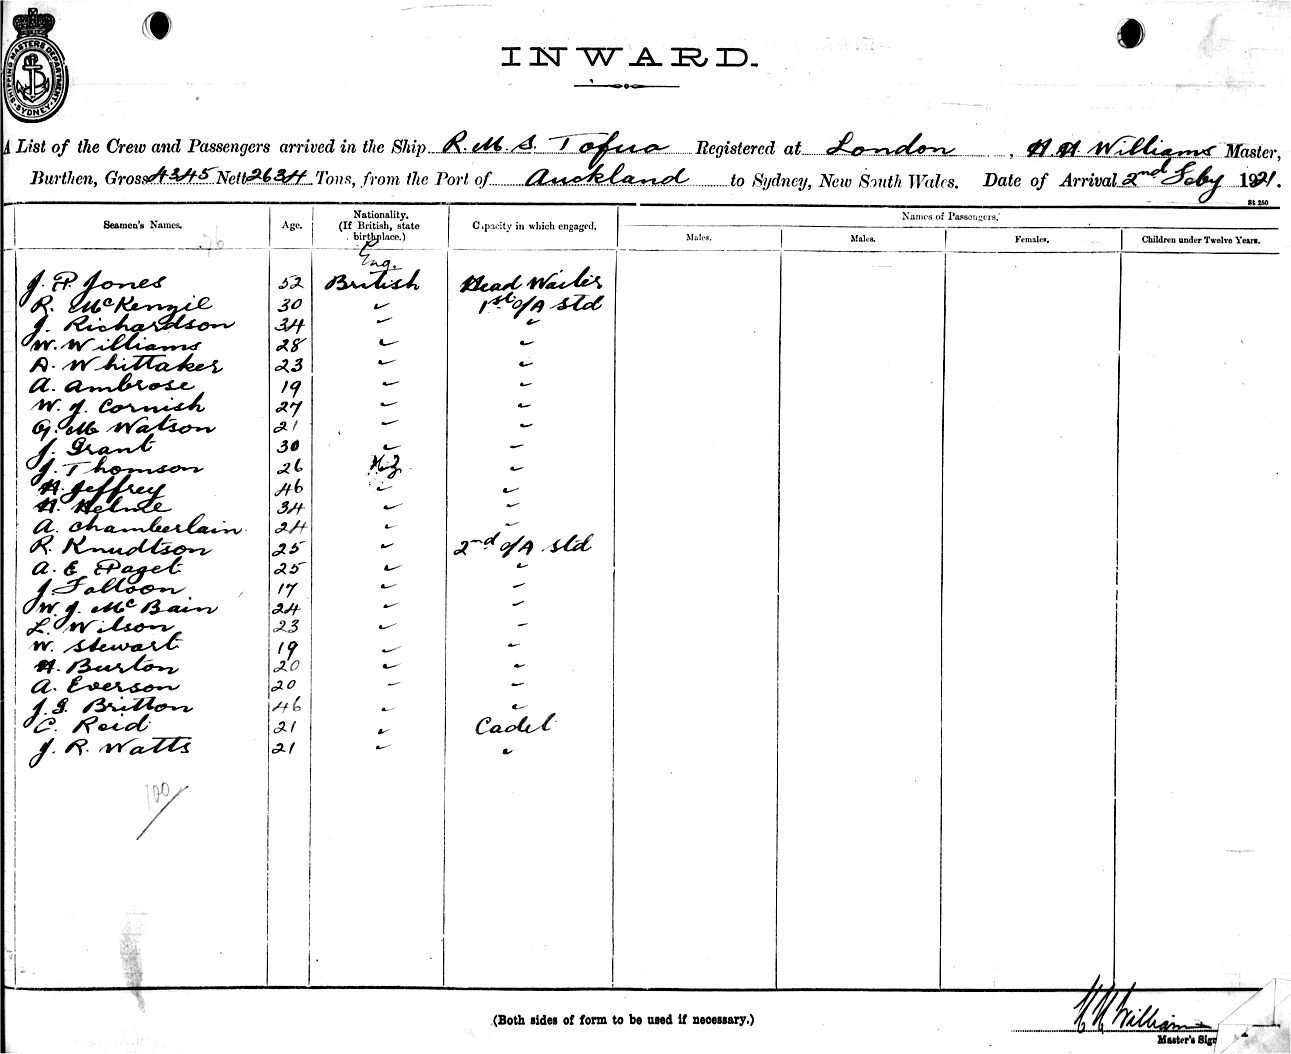 SHIPPING MASTERS DEPARTMENT SYDNEY
INWARD.
A List of the Crew and Passengers arrived in the Ship R.M.S. Tofua Registered at London, H H Williams Master,
Burthen, Gross 4345 Nett 2634 Tons, from the Port of Auckland to Sydney, New South Wales. Date of Arrival 2nd Feby 1921.
St 250
Seamen's Names. Age. Nationality. (If British, state birthplace.) Capacity in which engaged. Names of Passengers.
Males. Males. Females. Children under Twelve Years.
76
Eng.
J. P. Jones 52 British Head Waiter
R. McKenzie 30 " 1st o/A Std
J. Richardson 34 " "
W. Williams 28 " "
A. Whittaker 23 " "
A. Ambrose 19 " "
W. J. Cornish 27 " "
G. M Watson 21 " "
J. Grant 30 " "
J. Thomson 26 N.Z. "
H. Jeffrey 46 " "
H. Helme 34 " "
A. Chamberlain 24 " "
R. Knudtson 25 " 2nd o/A Std
A. E Paget 25 " "
J Falloon 17 " "
W. J. McBain 24 " "
L. Wilson 23 " "
W. Stewart 19 " "
H. Burton 20 " "
A. Everson 20 " "
J. G. Britton 46 " "
C. Reid 21 " Cadet
J. R. Watts 21 " "
100
(Both sides of form to be used if necessary.)
H H Williams
Master's Sig